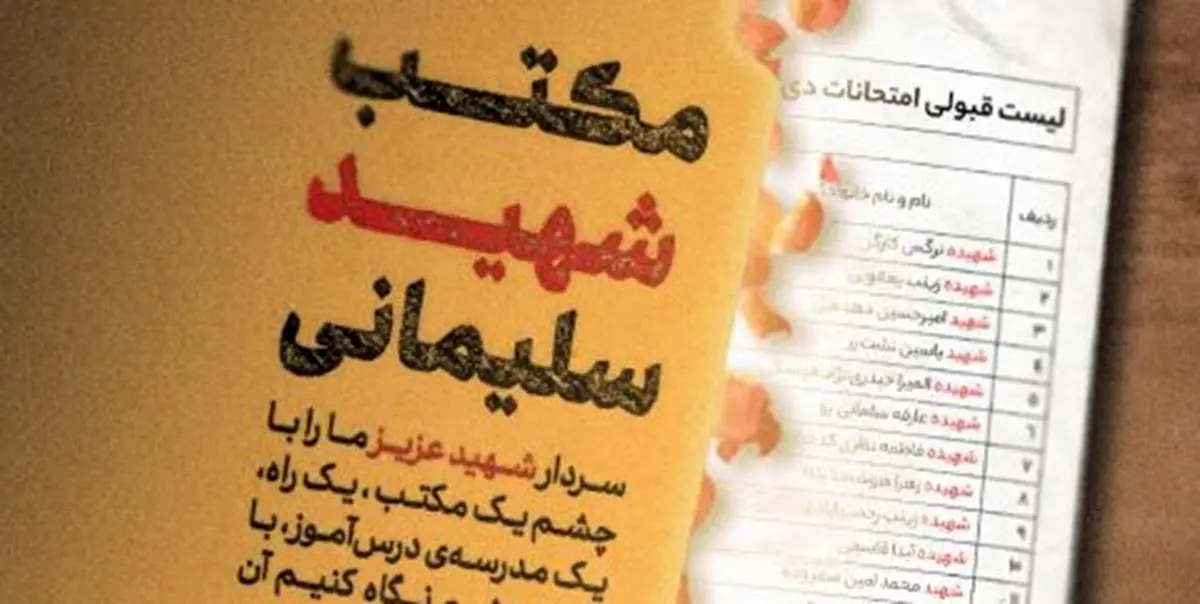 مکتب
شهید
سلیمانی
سردار شهید عزیز ما را با
چشم یک مکتب، یک راه،
یک مدرسه‌ی درس‌آموز، با
نگاه کنیم آن
لیست قبولی امتحانات دی
ردیف نام و نام خانوادگی
۱ شهیده نرگس کارگر
۲ شهیده زینب یعقوبی
۳ شهید امیرحسین
۴ شهید یاسین
۵ شهیده المیرا حیدری‌نژاد
۶ شهیده عارفه سلمانی
۷ شهیده فاطمه نظری
۸ شهیده زهرا
۹ شهیده زینب
۱۰ شهیده آیدا قاسمی
شهید محمد امین صفرزاده